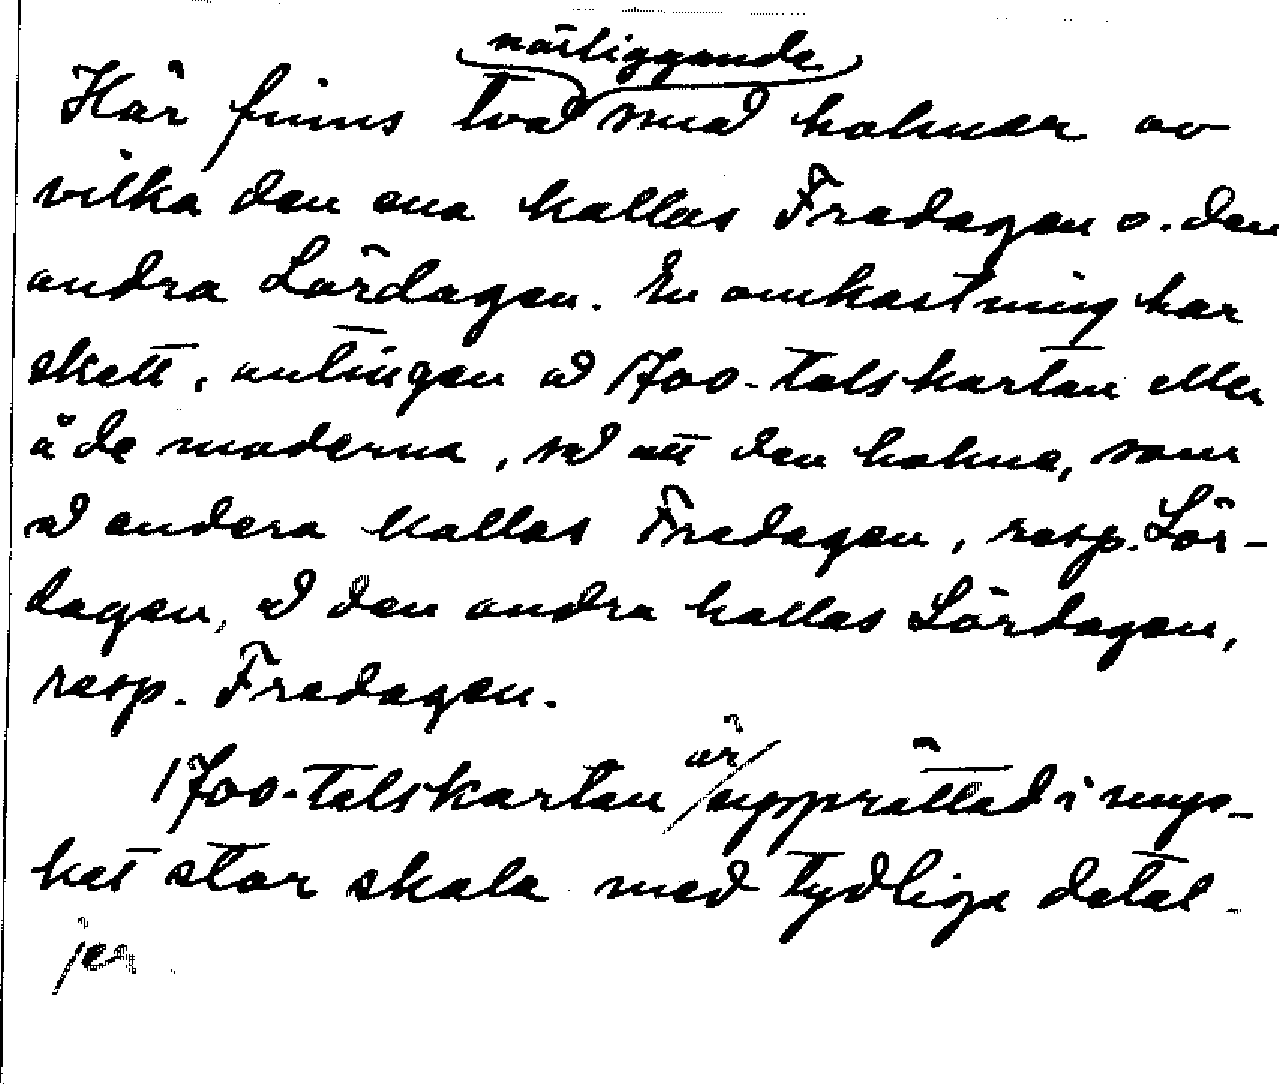 närliggande
Här finns två små holmar av
vilka den ena kallas Fredagen o. den
andra Lördagen. En omkastning har
skett, antingen å 1700-talskartan eller
å de moderna, så att den holme, som
å endera kallas Fredagen, resp. Lör-
dagen, å den andra kallas Lördagen,
resp. Fredagen.
är
1700-talskartan upprättad i myc-
ket stor skala med tydliga detal-
jer